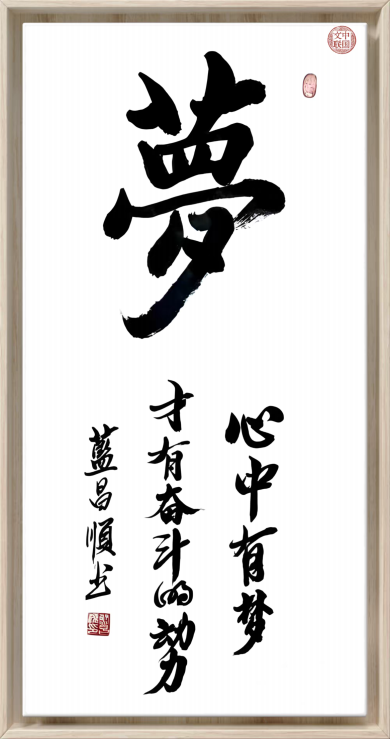 夢
心中有梦
才有奋斗的动力
藍昌順书
中国文联